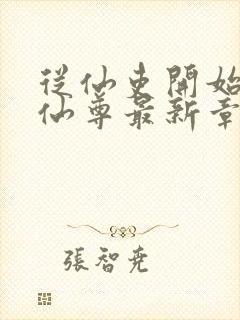 從仙吏開始
仙尊最新章
張智堯